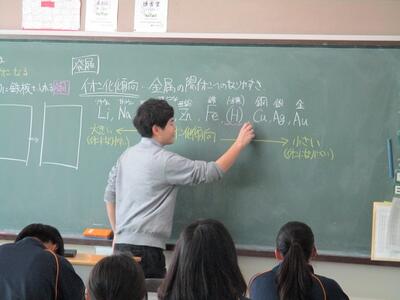 発展
イオン化傾向…金属の陽イオンへのなりやすさ
に鉄板を入れる
亜鉛 鉄 (水素) 銅 銀 金
Li, Na Zn, Fe, (H), Cu, Ag, Au
大きい イオン化傾向 小さい
(イオンになりやすい) (イオンになりにくい)